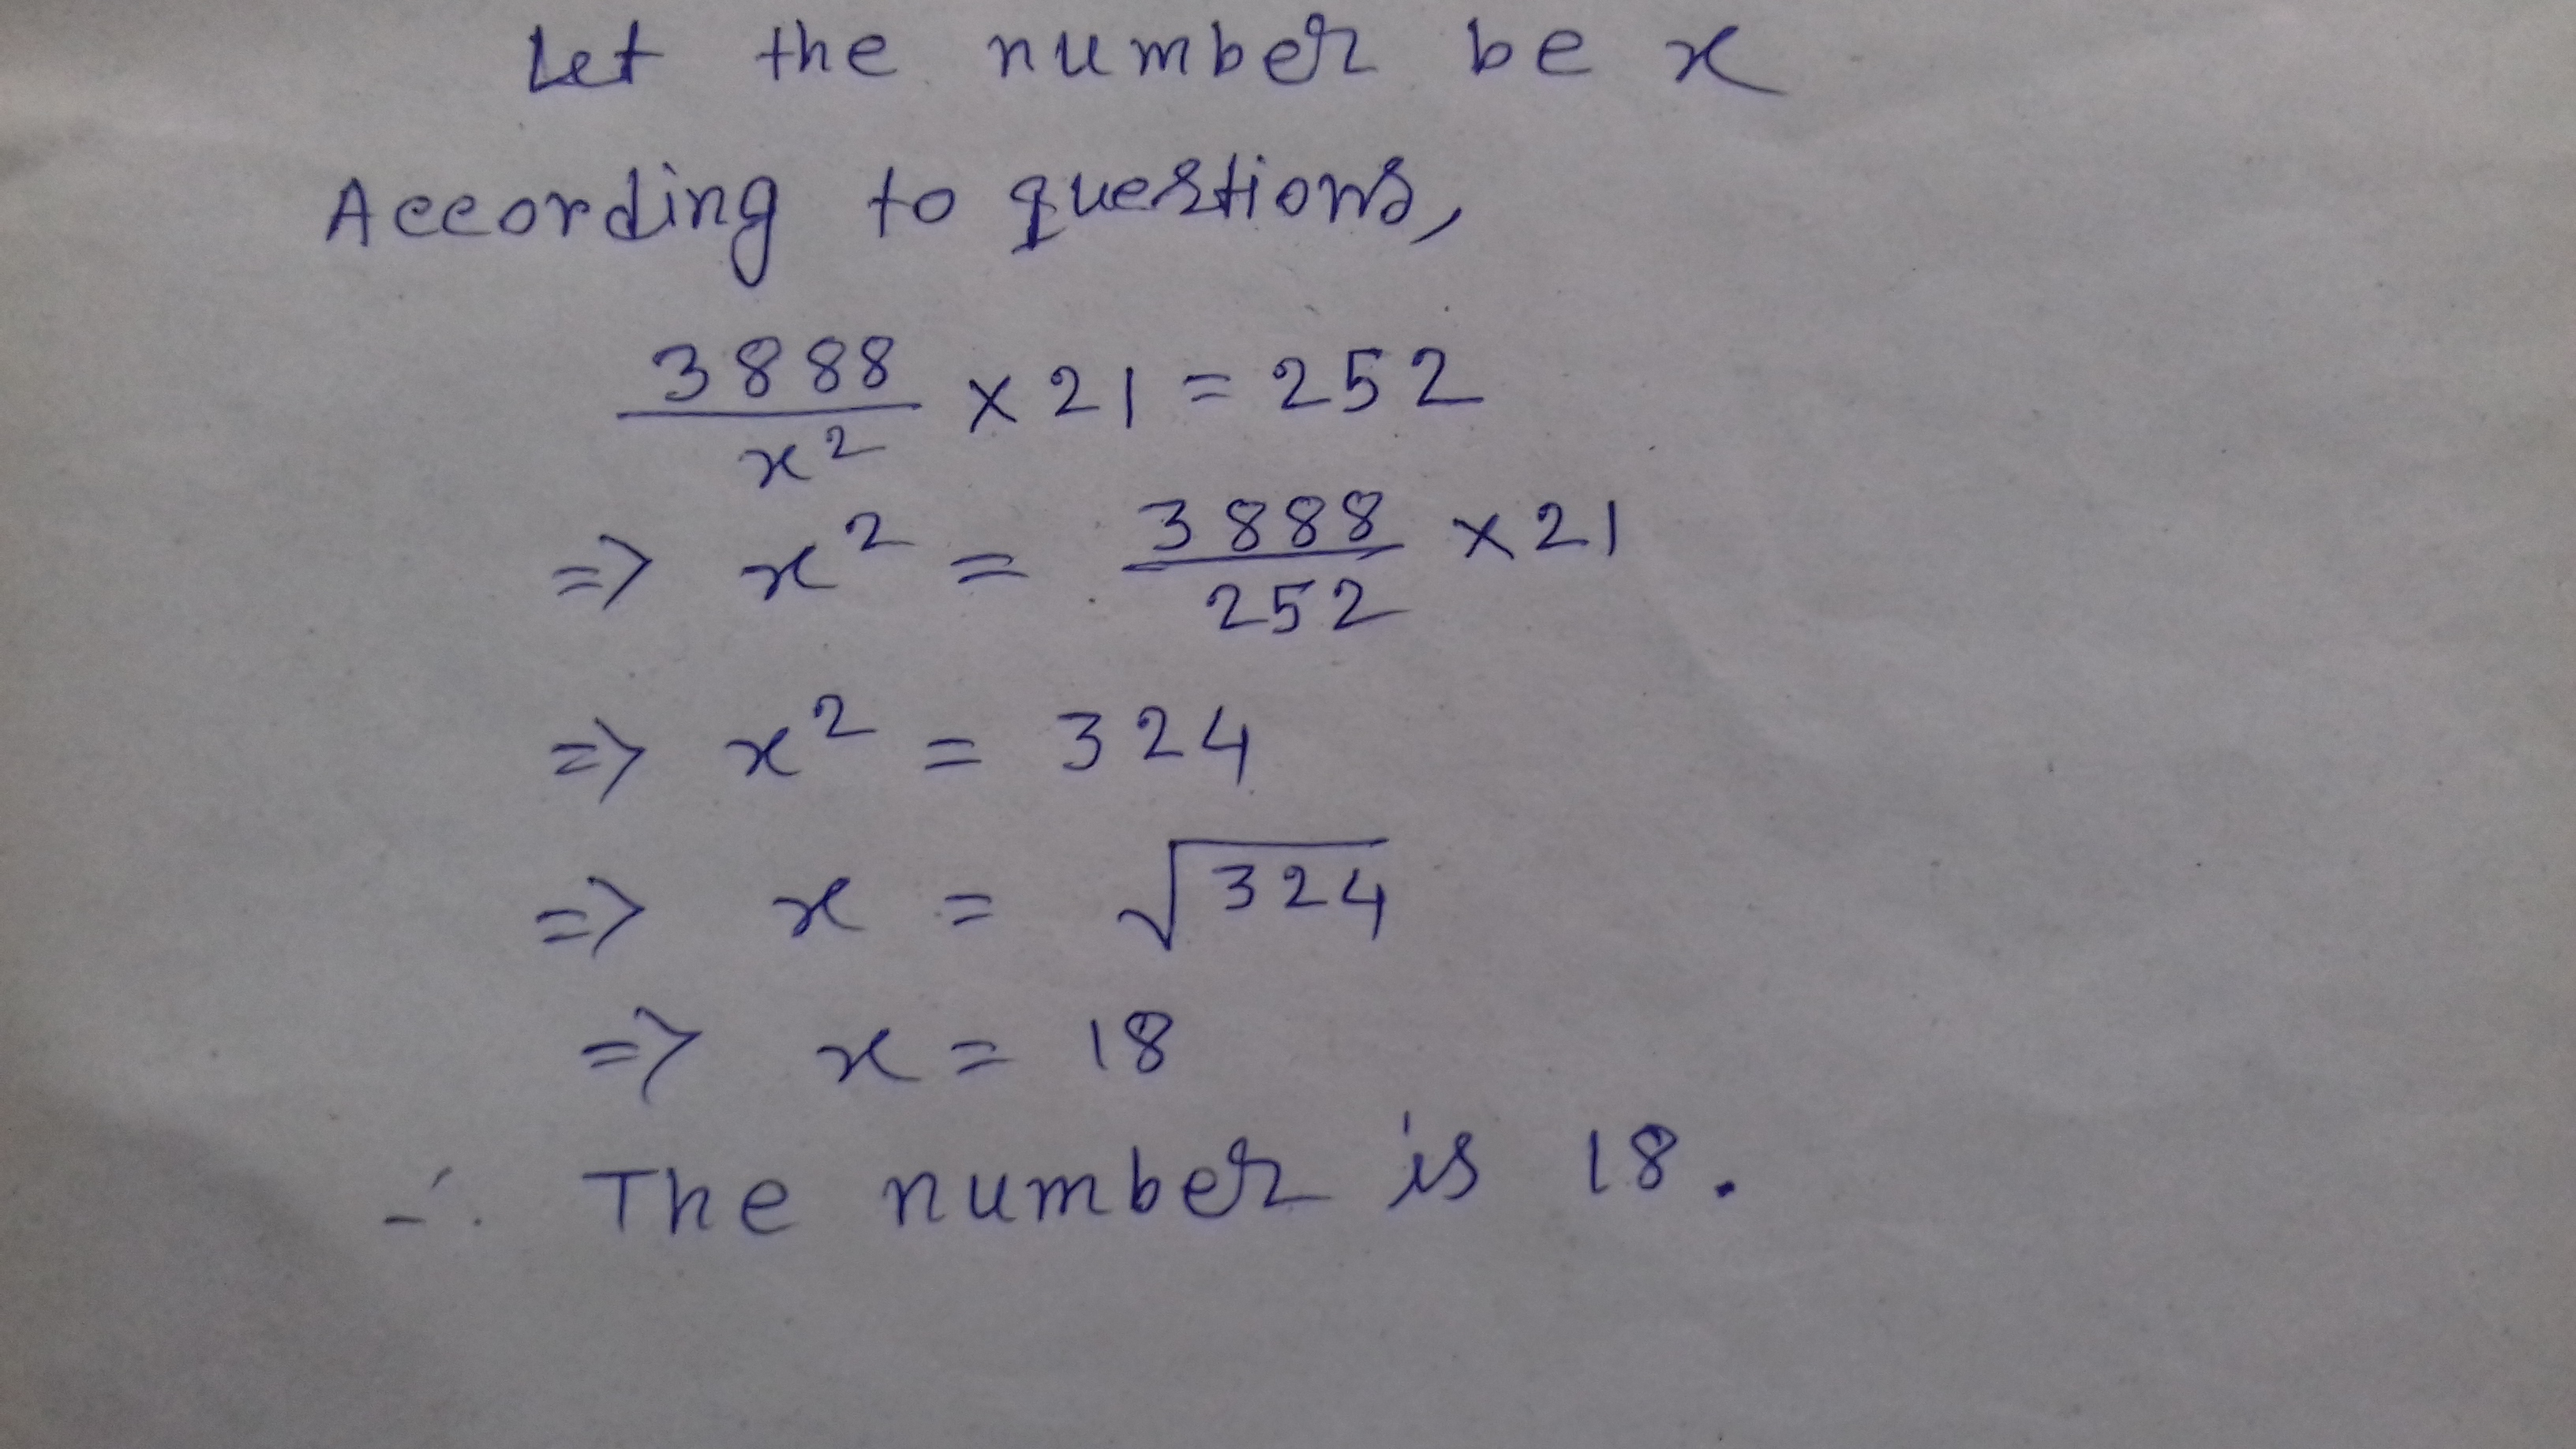 Let the number be x
According to questions,
3888/x² × 21 = 252
=> x² = 3888/252 × 21
=> x² = 324
=> x = √324
=> x = 18
∴ The number is 18.